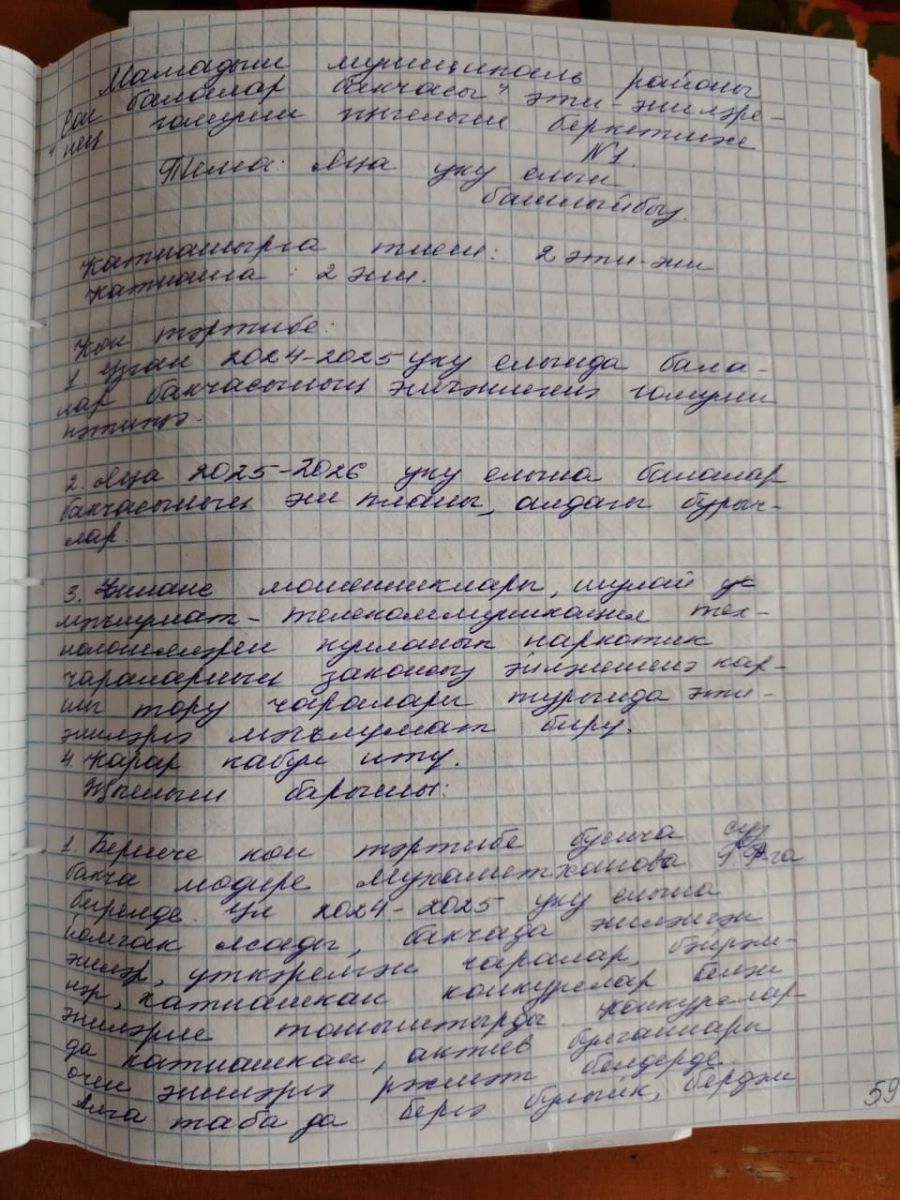 Мамадыш муниципаль районы
балалар бакчасы" эти-эниләре-
нең гомуми җыелыш беркетмәсе
№1.
Тема: Яңа уку елын
башлыйбыз.
Катнашырга тиеш: 2 эти-эни
Катнаша: 2 эни.
Көн тәртибе:
1. Узган 2024-2025 уку елында бала-
лар бакчасының эшчәнлегенә гомуми
нәтиҗә.
2. Яңа 2025-2026 уку елына балалар
бакчасының эш планы, алдагы бурыч-
лар.
3. Финанс мошенниклары, шулай ук
мәгълүмат-телекоммуникация тех-
нологияләрен кулланып наркотик
чараларның законсыз әйләнешенә кар-
шы тору чаралары турында эти-
эниләргә мәгълүмат бирү.
4. Карар кабул итү.
Җыелыш барышы:
1. Беренче көн тәртибе буенча сүз
бакча мөдире Мухаметханова га
бирелде. Ул 2024-2025 уку елына
йомгак ясады, бакчада эшләнгән
эшләр, үткәрелгән чаралар, бәйрәм-
нәр, катнашкан конкурслар белән
эниләрне таныштырды. Конкурслар-
да катнашкан, актив булганнары
өчен эниләргә рәхмәт белдерде.
Алга таба да бергә булыйк, бердәм
59